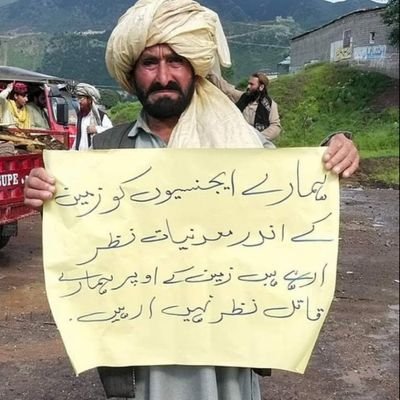 ہمارے ایجنسیوں کو زمین
کے اندر معدنیات نظر
ارہے ہیں زمین کے اوپر ہمارے
قاتل نظر نہیں ارہیں.